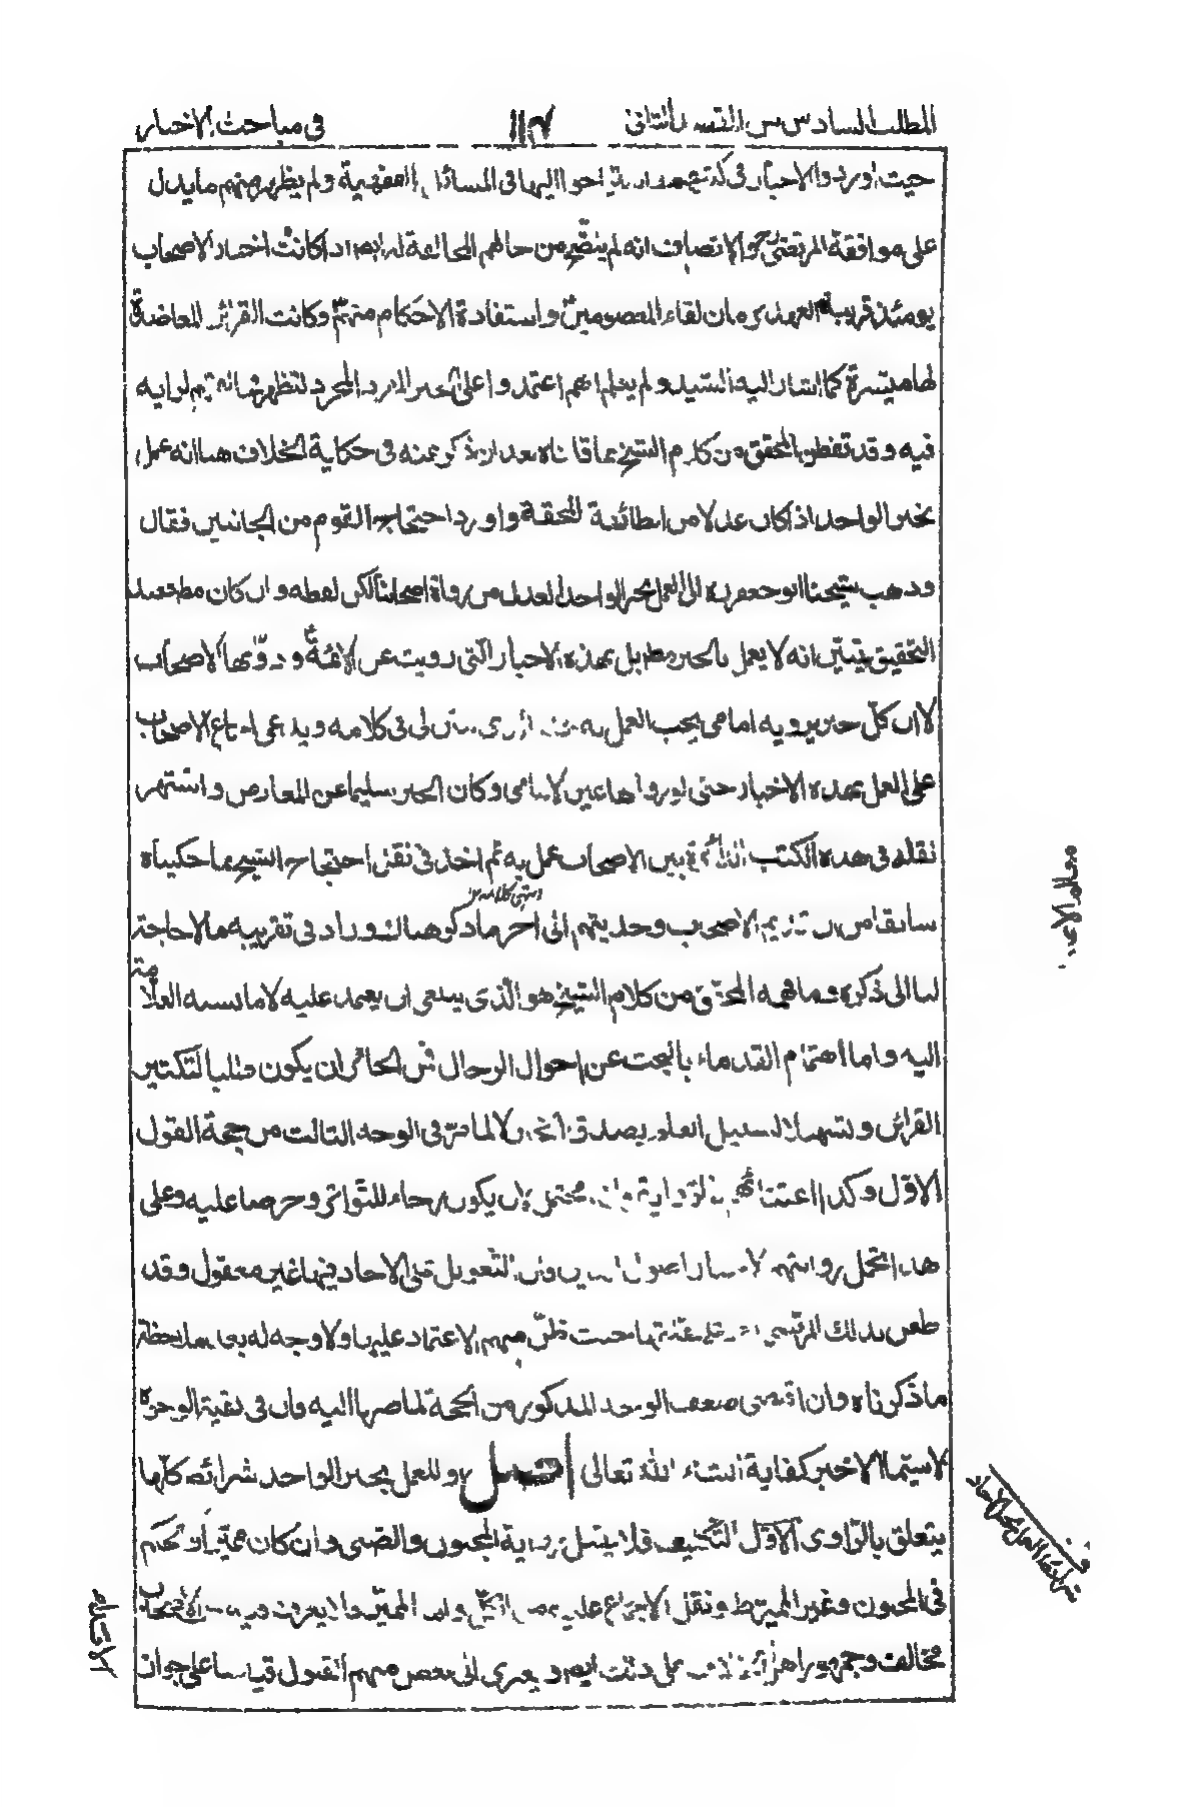 المطلب السادس من القسم الثانى ١١٧ فى مباحث الاخبار
حيث اوردوا الاخبار فى كتبهم واستراحوا اليها فى المسائل الفقهية ولم يظهر منهم ما يدل
على موافقة المرتضى والانصاف انه لم يتضح من حالهم المخالفة له ايضا اذ كانت اخبار الاصحاب
يومئذ قريبة العهد بزمان لقاء المعصومين واستفادة الاحكام منهم وكانت القرائن المعاضدة
لها متيسرة كما اشار اليه السيد ولم يعلم انهم اعتمدوا على الخبر المجرد لتظهر مخالفتهم لرايه
فيه وقد تفطن المحقق من كلام الشيخ لما قلناه بعد ان ذكر عنه فى حكاية الخلاف هنا انه عمل
بخبر الواحد اذا كان عدلا من الطائفة المحقة واورد احتجاج القوم من الجانبين فقال
وذهب شيخنا ابو جعفر ره الى العمل بخبر الواحد العدل من رواة اصحابنا لكن لفظه وان كان مطلقا فعند
التحقيق يتبين انه لا يعمل بالخبر مطلقا بل بهذه الاخبار التى رويت عن الائمة ع ودونها الاصحاب
لا ان كل خبر يرويه امامى يجب العمل به هذا الذى تبين لى فى كلامه ويدعى اجماع الاصحاب
على العمل بهذه الاخبار حتى لو رواها غير الامامى وكان الخبر سليما عن المعارض واشتهر
نقله فى هذه الكتب الدائرة بين الاصحاب عمل به ثم اخذ فى نقل احتجاج الشيخ بما حكيناه
سابقا من ان قديم الاصحاب وحديثهم الى اخر ما ذكر هناك وزاد فى تقريبه ما لا حاجة
انتهى كلامه
لنا الى ذكره وما فهمه المحقق من كلام الشيخ هو الذى ينبغى ان يعتمد عليه لا ما نسبه العلامة
اليه واما اهتمام القدماء بالبحث عن احوال الرجال فمن الجائز ان يكون طلبا لتكثير
القرائن وتسهيلا لسبيل العلم بصدق الخبر لا لما مر فى الوجه الثالث من حجة القول
الاول وكذا اعتناؤهم بالرواية فانه محتمل لان يكون رجاء للتواتر وحرصا عليه وعلى
هذا تحمل روايتهم لاخبار اصول الدين فان التعويل على الاحاد فيها غير معقول وقد
طعن بذلك المرتضى على نقلتها حيث ظن منهم الاعتماد عليها ولا وجه له بعد ملاحظة
ما ذكرناه وان اقتضى ضعف الوجه المذكور من الحجة لما صرنا اليه فان فى بقية الوجوه
لا سيما الاخير كفاية انشاء الله تعالى اصل وللعمل بخبر الواحد شرائط كلها
يتعلق بالراوى الاول التكليف فلا يقبل رواية المجنون والصبى وان كان مميزا والحكم
فى المجنون وغير المميز ظ ونقل الاجماع عليه من الكل واما المميز فلا يعرف فيه من الاصحاب
مخالف وجمهور اهل الخلاف على ذلك ايضا ويعزى الى بعض منهم القبول قياسا على جواز
معالم الا
شرائط العمل بخبر الاحاد
الاقتداء